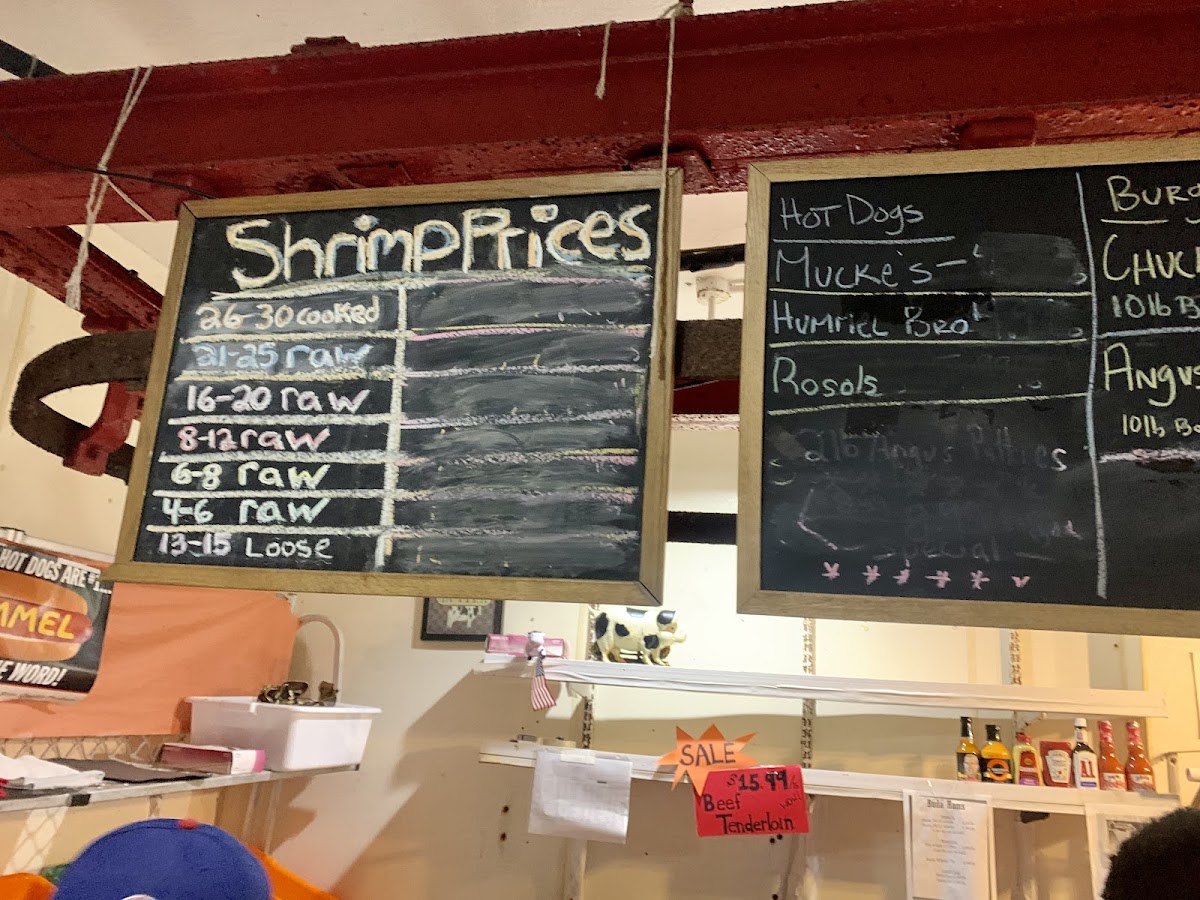 Shrimp Prices
26-30 cooked
21-25 raw
16-20 raw
8-12 raw
6-8 raw
4-6 raw
13-15 Loose
Hot Dogs
Mucke's -
Hummel Bro'
Rosols
2lb Angus Patties
Special
10lb
Angus
10lb
HOT DOGS ARE
WORD!
SALE
$15.99
Beef
Tenderloin
A.1